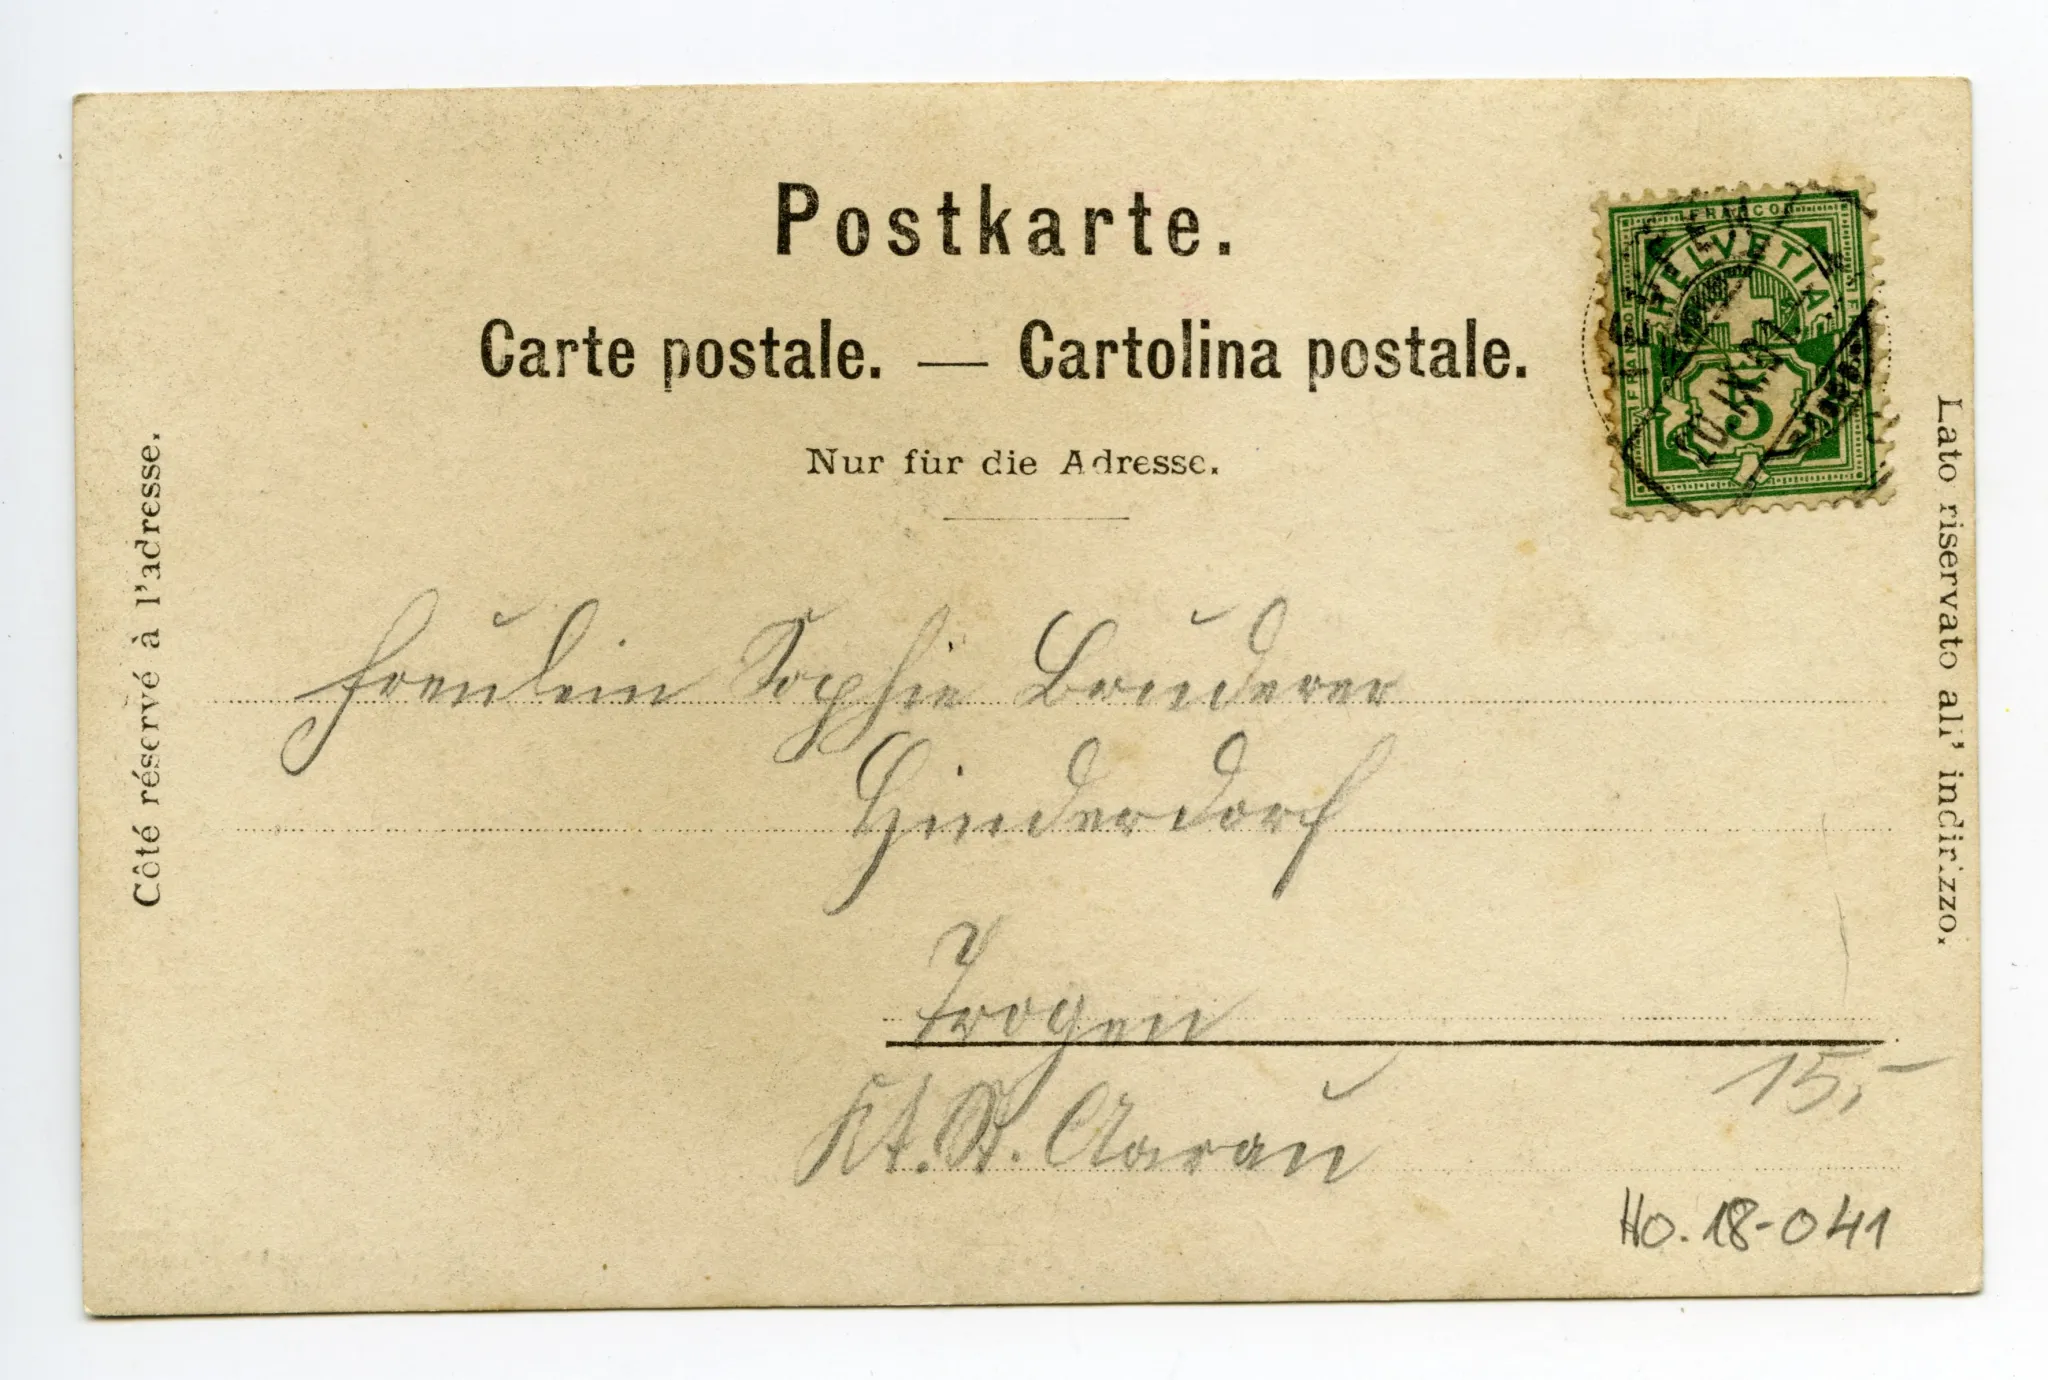 Postkarte.
Carte postale. — Cartolina postale.
Nur für die Adresse.
Côté réservé à l'adresse.
Lato riservato all' indirizzo.
FRANCO
HELVETIA
5
Freulein Sophie Bruderer
Hinderdorf
Trogen
Kt. St. Aarau
15,-
Ho. 18-041